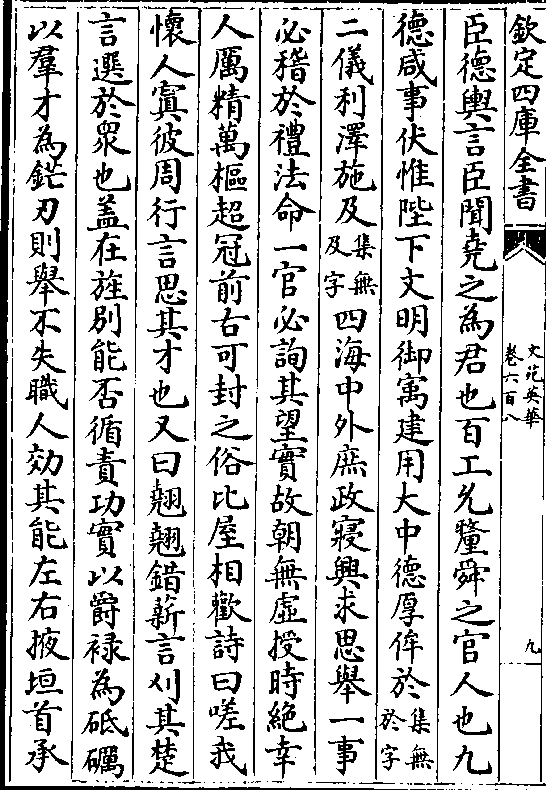 欽定四庫全書
文苑英華
卷六百八
九
臣德輿言臣聞堯之為君也百工允釐舜之官人也九
德咸事伏惟陛下文明御㝢建用大中德厚侔於集無於字
二儀利澤施及集無及字四海中外庶政寢興求思舉一事
必稽於禮法命一官必詢其望實故朝無虛授時絶幸
人厲精萬樞超冠前古可封之俗比屋相歡詩曰嗟我
懷人寘彼周行言思其才也又曰翹翹錯薪言刈其楚
言選於衆也盖在旌别能否循責功實以爵祿為砥礪
以羣才為鋩刃則舉不失職人効其能左右掖垣首承